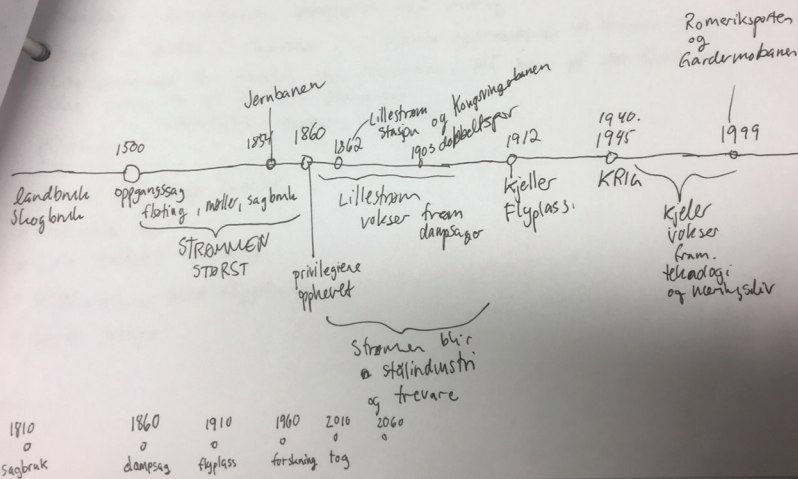 Romeriksporten
og
Gardermobanen
Jernbanen
Lillestrøm
stasjon og Kongsvingerbanen
1903 dobbeltspor
1500
1854
1860
1862
1912
1940.
1945
1999
landbruk
Skogbruk
oppgangssag
fløting, møller, sagbruk
STRØMMEN
STØRST
privilegiene
opphevet
Lillestrøm
vokser frem
dampsager
Kjeller
Flyplass.
KRIG
Kjeller
vokser
fram.
teknologi
og næringsliv
Strømmen blir
stålindustri
og trevare
1810
1860
1910
1960
2010
2060
sagbruk
dampsag
flyplass
forskning
tog